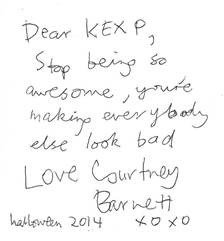 Dear KEXP,
Stop being so
awesome, you're
making everybody
else look bad
Love Courtney
Barnett
halloween 2014 xoxo